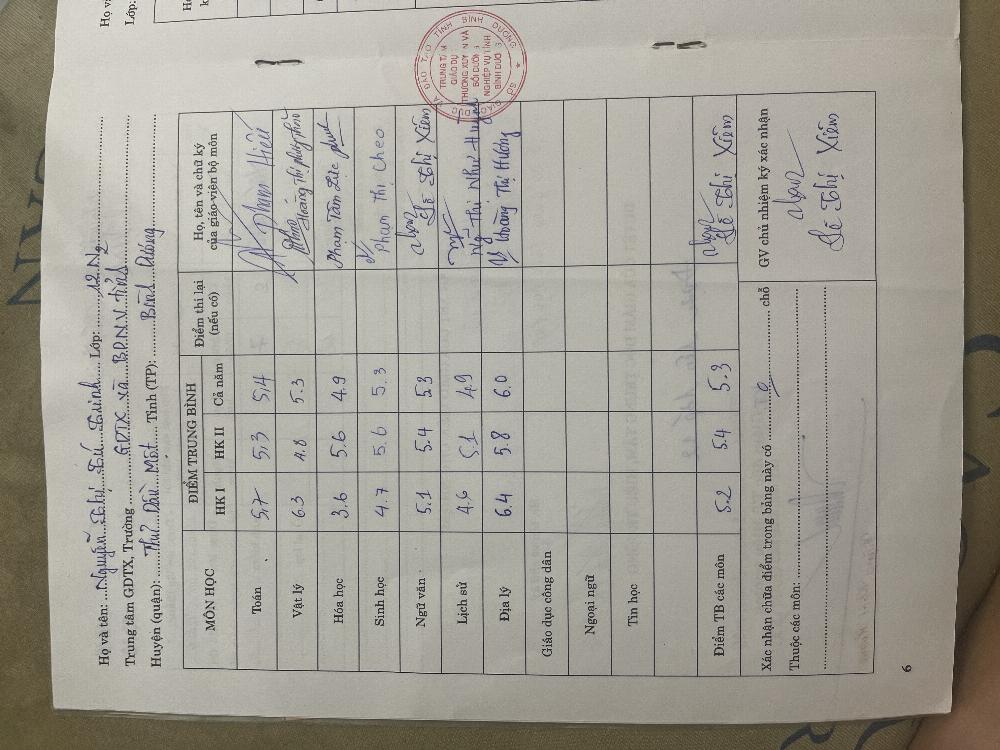 Họ và tên: Nguyễn Thị Tú Trinh Lớp: 12 N2
Trung tâm GDTX, Trường GDTX và B.D.N.V. tỉnh
Huyện (quận): Thủ Dầu Một Tỉnh (TP): Bình Dương
MÔN HỌC ĐIỂM TRUNG BÌNH Điểm thi lại (nếu có) Họ, tên và chữ ký của giáo viên bộ môn
HK I HK II Cả năm
Toán 5,7 5,3 5,4 Phạm Hiếu
Vật lý 6.3 4.8 5.3 Hoàng Thị
Hóa học 3.6 5.6 4.9 Phạm Tấn Lực
Sinh học 4.7 5.6 5.3 Phạm Thị Cheo
Ngữ văn 5.1 5.4 5.3 Lê Thị Xiêm
Lịch sử 4.6 5.1 4.9 Ng Thị Như Huỳnh
Địa lý 6.4 5.8 6.0 Hoàng Thị Hương
Giáo dục công dân
Ngoại ngữ
Tin học
Điểm TB các môn 5.2 5.4 5.3 Lê Thị Xiêm
Xác nhận chữa điểm trong bảng này có 0 chỗ
Thuộc các môn:
GV chủ nhiệm ký xác nhận
Lê Thị Xiêm
6
SỞ GIÁO DỤC ĐÀO TẠO TỈNH BÌNH DƯƠNG
TRUNG TÂM
GIÁO DỤC
THƯỜNG XUYÊN VÀ
BỒI DƯỠNG
NGHIỆP VỤ TỈNH
BÌNH DƯƠNG
Họ và
Lớp: